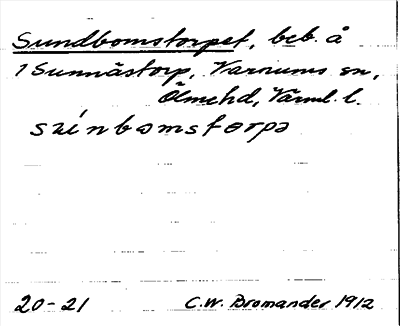 Sundbomstorpet, beb. å
1 Sunnästorp, Varnums sn,
Ölmehd, Värml. l.
20-21 C.W. Bromander 1912